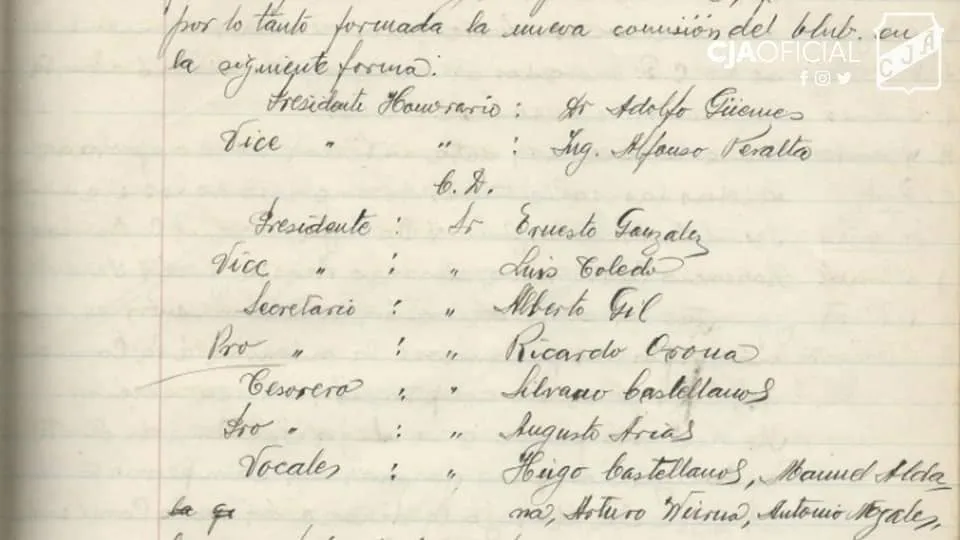 por lo tanto formada la nueva comisión del Club. en
la siguiente forma:
Presidente Honorario : Dr Adolfo Güemes
Vice " " : Ing. Alfonso Peralta
C. D.
Presidente : Sr Ernesto Gonzalez
Vice " : " Luis Toledo
Secretario : " Alberto Gil
Pro " : " Ricardo Orona
Tesorero : " Silvano Castellanos
Pro " : " Augusto Arias
Vocales : " Hugo Castellanos, Manuel Alda-
na, Arturo Antonio
CJAOFICIAL
CJA